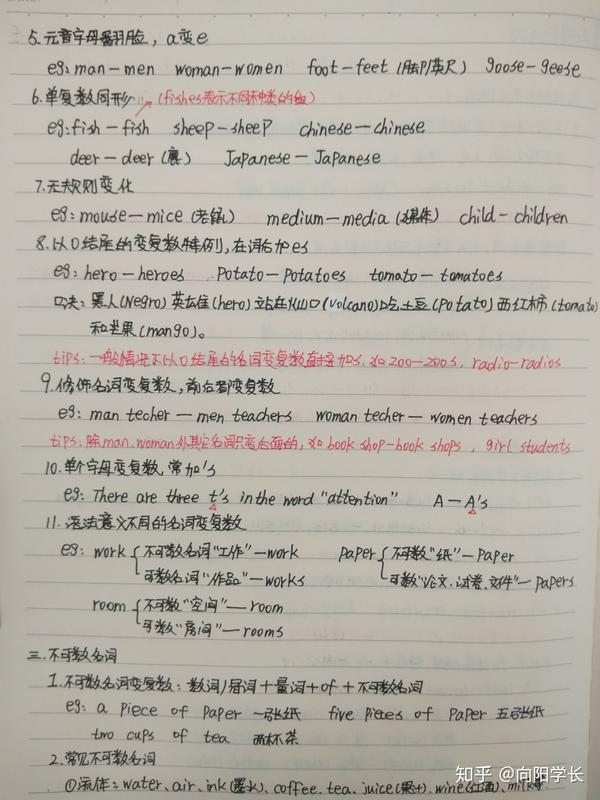 5.元音字母翻脸，a变e
eg: man-men woman-women foot-feet (脚/英尺) goose-geese
6.单复数同形 (fishes表示不同种类的鱼)
eg: fish-fish sheep-sheep chinese-chinese
deer-deer (鹿) Japanese-Japanese
7.无规则变化
eg: mouse-mice (老鼠) medium-media (媒体) child-children
8.以O结尾的变复数特例，在词后加es
eg: hero-heroes potato-potatoes tomato-tomatoes
口决：黑人(Negro)英雄(hero)站在火山口(volcano)吃土豆(potato)西红柿(tomato)
和芒果(mango)。
tips：一般情况下以O结尾的名词变复数直接加s，如zoo-zoos，radio-radios
9.修饰名词变复数，前后若变复数
eg: man techer-men teachers woman techer-women teachers
tips：除man.woman外其它名词只变后面的，如book shop-book shops，girl students
10.单个字母变复数，常加's
eg: There are three t's in the word "attention" A-A's
11.语法意义不同的名词变复数
eg: work { 不可数名词"工作"-work paper { 不可数"纸"-paper
可数名词"作品"-works 可数"论文.试卷.文件"-papers
room { 不可数"空间"-room
可数"房间"-rooms
三.不可数名词
1.不可数名词变复数：数词/冠词+量词+of+不可数名词
eg: a piece of paper 一张纸 five pieces of paper 五张纸
two cups of tea 两杯茶
2.常见不可数名词
①流体：water、air、ink(墨水)、coffee、tea、juice(果汁)、wine(红酒)、milk等
知乎 @向阳学长